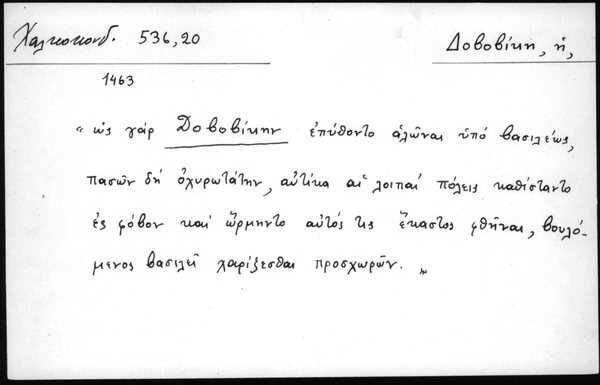 Χαλκοκονδ. 536,20
Δοβοβίκη, ἡ,
1463
“ὡς γὰρ Δοβοβίκην ἐπύθοντο ἁλῶναι ὑπό βασιλέως,
πασῶν δή ὀχυρωτάτην, αὐτίκα αἱ λοιπαί πόλεις καθίσταντο
ἐς φόβον καί ὥρμηντο αὐτός τις ἕκαστος φθῆναι, βουλό-
μενος βασιλεῖ χαρίζεσθαι προσχωρῶν.„